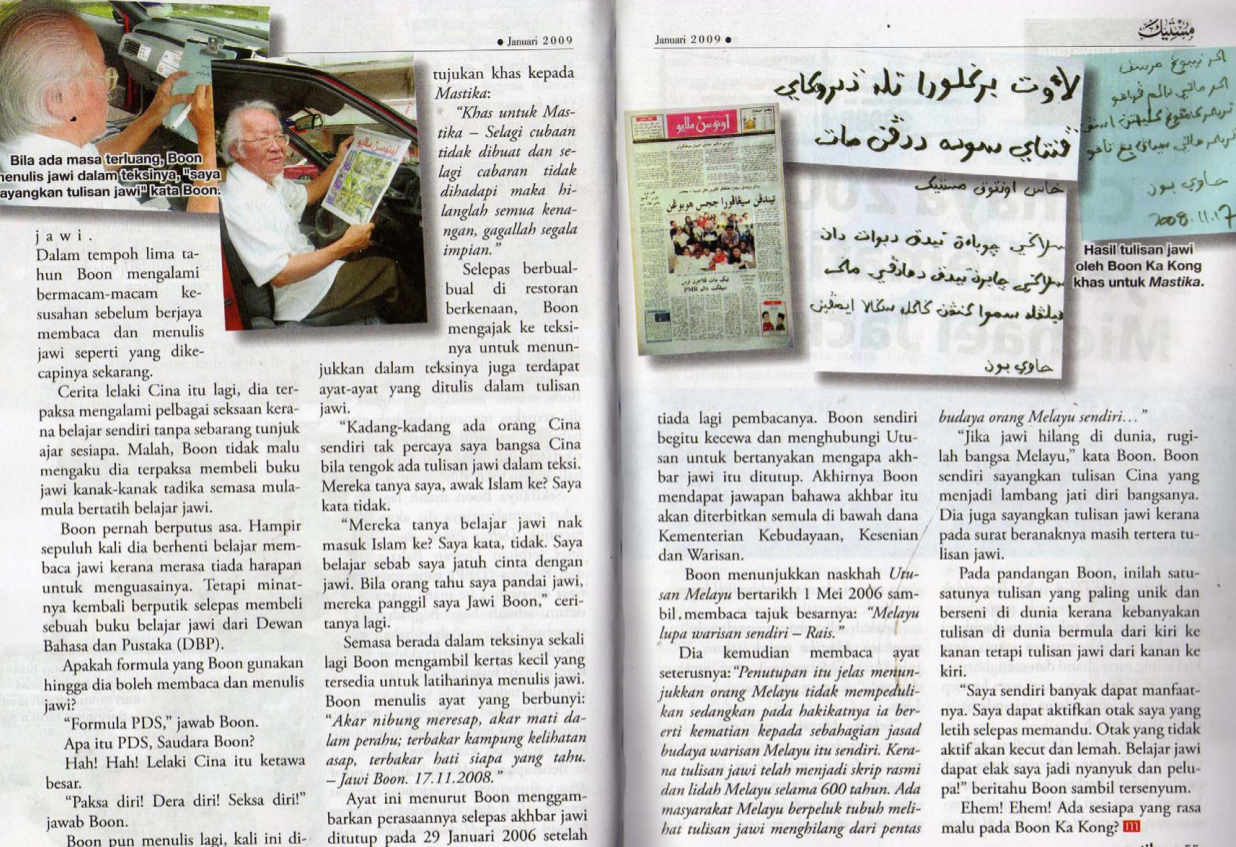 ● Januari 2009
Bila ada masa terluang, Boon
menulis jawi dalam teksinya, "saya
sayangkan tulisan jawi" kata Boon.
jawi.
Dalam tempoh lima ta-
hun Boon mengalami
bermacam-macam ke-
susahan sebelum berjaya
membaca dan menulis
jawi seperti yang dike-
capinya sekarang.
Cerita lelaki Cina itu lagi, dia ter-
paksa mengalami pelbagai seksaan kera-
na belajar sendiri tanpa sebarang tunjuk
ajar sesiapa. Malah, Boon tidak malu
mengaku dia terpaksa membeli buku
jawi kanak-kanak tadika semasa mula-
mula bertatih belajar jawi.
Boon pernah berputus asa. Hampir
sepuluh kali dia berhenti belajar mem-
baca jawi kerana merasa tiada harapan
untuk menguasainya. Tetapi minat-
nya kembali berputik selepas membeli
sebuah buku belajar jawi dari Dewan
Bahasa dan Pustaka (DBP).
Apakah formula yang Boon gunakan
hingga dia boleh membaca dan menulis
jawi?
"Formula PDS," jawab Boon.
Apa itu PDS, Saudara Boon?
Hah! Hah! Lelaki Cina itu ketawa
besar.
"Paksa diri! Dera diri! Seksa diri!"
jawab Boon.
Boon pun menulis lagi, kali ini di-
tujukan khas kepada
Mastika:
"Khas untuk Mas-
tika – Selagi cubaan
tidak dibuat dan se-
lagi cabaran tidak
dihadapi maka hi-
langlah semua kena-
ngan, gagallah segala
impian."
Selepas berbual-
bual di restoran
berkenaan, Boon
mengajak ke teksi-
nya untuk menun-
jukkan dalam teksinya juga terdapat
ayat-ayat yang ditulis dalam tulisan
jawi.
"Kadang-kadang ada orang Cina
sendiri tak percaya saya bangsa Cina
bila tengok ada tulisan jawi dalam teksi.
Mereka tanya saya, awak Islam ke? Saya
kata tidak.
"Mereka tanya belajar jawi nak
masuk Islam ke? Saya kata, tidak. Saya
belajar sebab saya jatuh cinta dengan
jawi. Bila orang tahu saya pandai jawi,
mereka panggil saya Jawi Boon," ceri-
tanya lagi.
Semasa berada dalam teksinya sekali
lagi Boon mengambil kertas kecil yang
tersedia untuk latihannya menulis jawi.
Boon menulis ayat yang berbunyi:
"Akar nibung meresap, akar mati da-
lam perahu; terbakar kampung kelihatan
asap, terbakar hati siapa yang tahu.
– Jawi Boon. 17.11.2008."
Ayat ini menurut Boon menggam-
barkan perasaannya selepas akhbar jawi
ditutup pada 29 Januari 2006 setelah
Januari 2009 ●
مستيک
لاءوت برݢلورا تله
ڤنتاي سوده ددڤن مات
اوتوسن ملايو
تيندقن سيڠاڤورا ججس هوبوڠن
PMR
خاص اونتوق مستيک
سلاݢي چوباءن تيدق دبوات دان
سلاݢي چابرن تيدق دهادڤي مک
سموا كنڠن ݢاݢل سݢالا ايمڤين
جاوي بون
جاوي بون
2008.11.17
Hasil tulisan jawi
oleh Boon Ka Kong
khas untuk Mastika.
tiada lagi pembacanya. Boon sendiri
begitu kecewa dan menghubungi Utu-
san untuk bertanyakan mengapa akh-
bar jawi itu ditutup. Akhirnya Boon
mendapat jawapan bahawa akhbar itu
akan diterbitkan semula di bawah dana
Kementerian Kebudayaan, Kesenian
dan Warisan.
Boon menunjukkan naskhah Utu-
san Melayu bertarikh 1 Mei 2006 sam-
bil membaca tajuk besarnya: "Melayu
lupa warisan sendiri – Rais."
Dia kemudian membaca ayat
seterusnya: "Penutupan itu jelas menun-
jukkan orang Melayu tidak mempeduli-
kan sedangkan pada hakikatnya ia ber-
erti kematian kepada sebahagian jasad
budaya warisan Melayu itu sendiri. Kera-
na tulisan jawi telah menjadi skrip rasmi
dan lidah Melayu selama 600 tahun. Ada
masyarakat Melayu berpeluk tubuh meli-
hat tulisan jawi menghilang dari pentas
budaya orang Melayu sendiri…"
"Jika jawi hilang di dunia, rugi-
lah bangsa Melayu," kata Boon. Boon
sendiri sayangkan tulisan Cina yang
menjadi lambang jati diri bangsanya.
Dia juga sayangkan tulisan jawi kerana
pada surat beranaknya masih tertera tu-
lisan jawi.
Pada pandangan Boon, inilah satu-
satunya tulisan yang paling unik dan
berseni di dunia kerana kebanyakan
tulisan di dunia bermula dari kiri ke
kanan tetapi tulisan jawi dari kanan ke
kiri.
"Saya sendiri banyak dapat manfaat-
nya. Saya dapat aktifkan otak saya yang
letih selepas memandu. Otak yang tidak
aktif akan kecut dan lemah. Belajar jawi
dapat elak saya jadi nyanyuk dan pelu-
pa!" beritahu Boon sambil tersenyum.
Ehem! Ehem! Ada sesiapa yang rasa
malu pada Boon Ka Kong? m